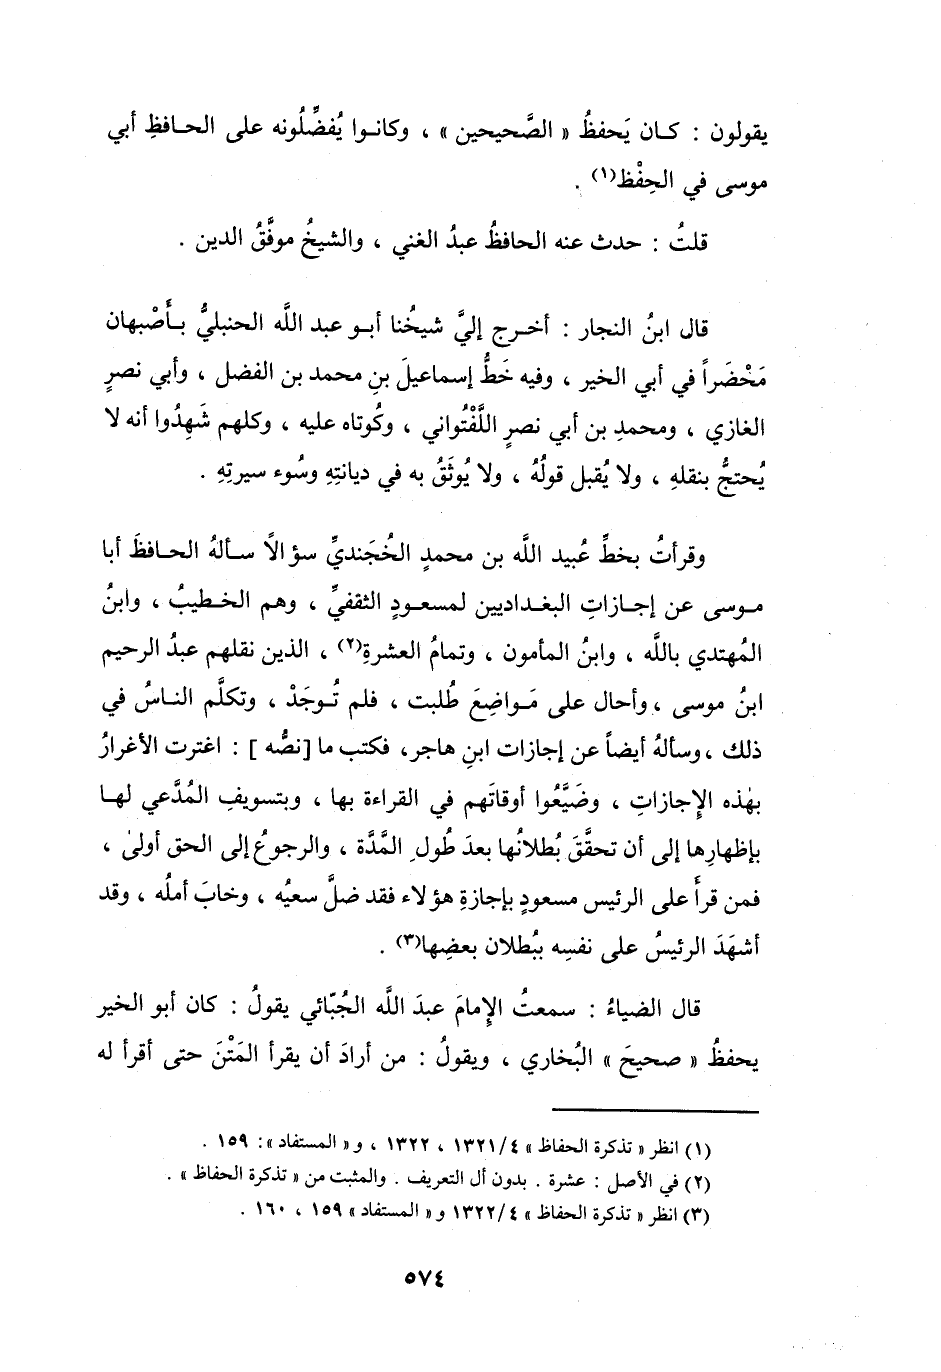 يقولون : كـان يَحفظُ « الصَّحيحين » ، وكانـوا يُفضِّلُونه على الحـافظِ أبي
موسى في الحِفْظ(١) .
قلتُ : حدث عنه الحافظُ عبدُ الغني ، والشيخُ موفَّقُ الدين .
قال ابنُ النجار : أخـرج إليَّ شيخُنا أبـو عبد اللَّه الحنبليُّ بـأَصْبهان
مَحْضَراً في أبي الخير ، وفيه خَطُّ إسماعيلَ بنِ محمد بن الفضل ، وأبي نصرٍ
الغازي ، ومحمدِ بن أبي نصرٍ اللَّفْتُواني ، وكُوتاه عليه ، وكلهم شَهِدُوا أنه لا
يُحتجُّ بنقلهِ ، ولا يُقبل قولُهُ ، ولا يُوثَقُ به في ديانتِهِ وسُوء سيرتِهِ .
وقرأتُ بخطِّ عُبيد اللَّه بن محمدٍ الخُجَنديِّ سؤالاً سـألهُ الحـافظَ أبا
مـوسى عن إجـازاتِ البغـداديين لمسعـودٍ الثقفيِّ ، وهم الخـطيبُ ، وابنُ
المُهتدي باللَّه ، وابنُ المأمون ، وتمامُ العشرةِ(٢) ، الذين نقلهم عبدُ الرحيم
ابنُ موسى ، وأحال على مَـواضِعَ طُلبت ، فلم تُـوجَدْ ، وتكلَّم النـاسُ في
ذلك ، وسألهُ أيضاً عن إجازات ابنِ هاجر، فكتب ما [نصُّه ] : اغترت الأغرارُ
بهٰذه الإِجازاتِ ، وضَيَّعُوا أوقاتَهم في القراءة بها ، وبتسويفِ المُدَّعي لهـا
بإظهارِها إلى أن تحقَّقَ بُطلانُها بعدَ طُولِ المُدَّة ، والرجوعُ إلى الحق أولىٰ ،
فمن قرأَ على الرئيس مسعودٍ بإجازةِ هؤلاء فقد ضلَّ سعيُه ، وخابَ أملُه ، وقد
أشهَدَ الرئيسُ على نفسِه ببُطلان بعضِها(٣) .
قال الضياءُ : سمعتُ الإِمامَ عبدَ اللَّه الجُبّائي يقولُ : كان أبو الخير
يحفظُ « صحيحَ » البُخاري ، ويقولُ : من أرادَ أن يقرأ المَتْنَ حتى أقرأ له
(١) انظر « تذكرة الحفاظ » ٤/ ١٣٢١ ، ١٣٢٢ ، و « المستفاد » : ١٥٩ .
(٢) في الأصل : عشرة . بدون أل التعريف . والمثبت من « تذكرة الحفاظ » .
(٣) انظر « تذكرة الحفاظ » ٤/ ١٣٢٢ و « المستفاد » ١٥٩ ، ١٦٠ .
٥٧٤